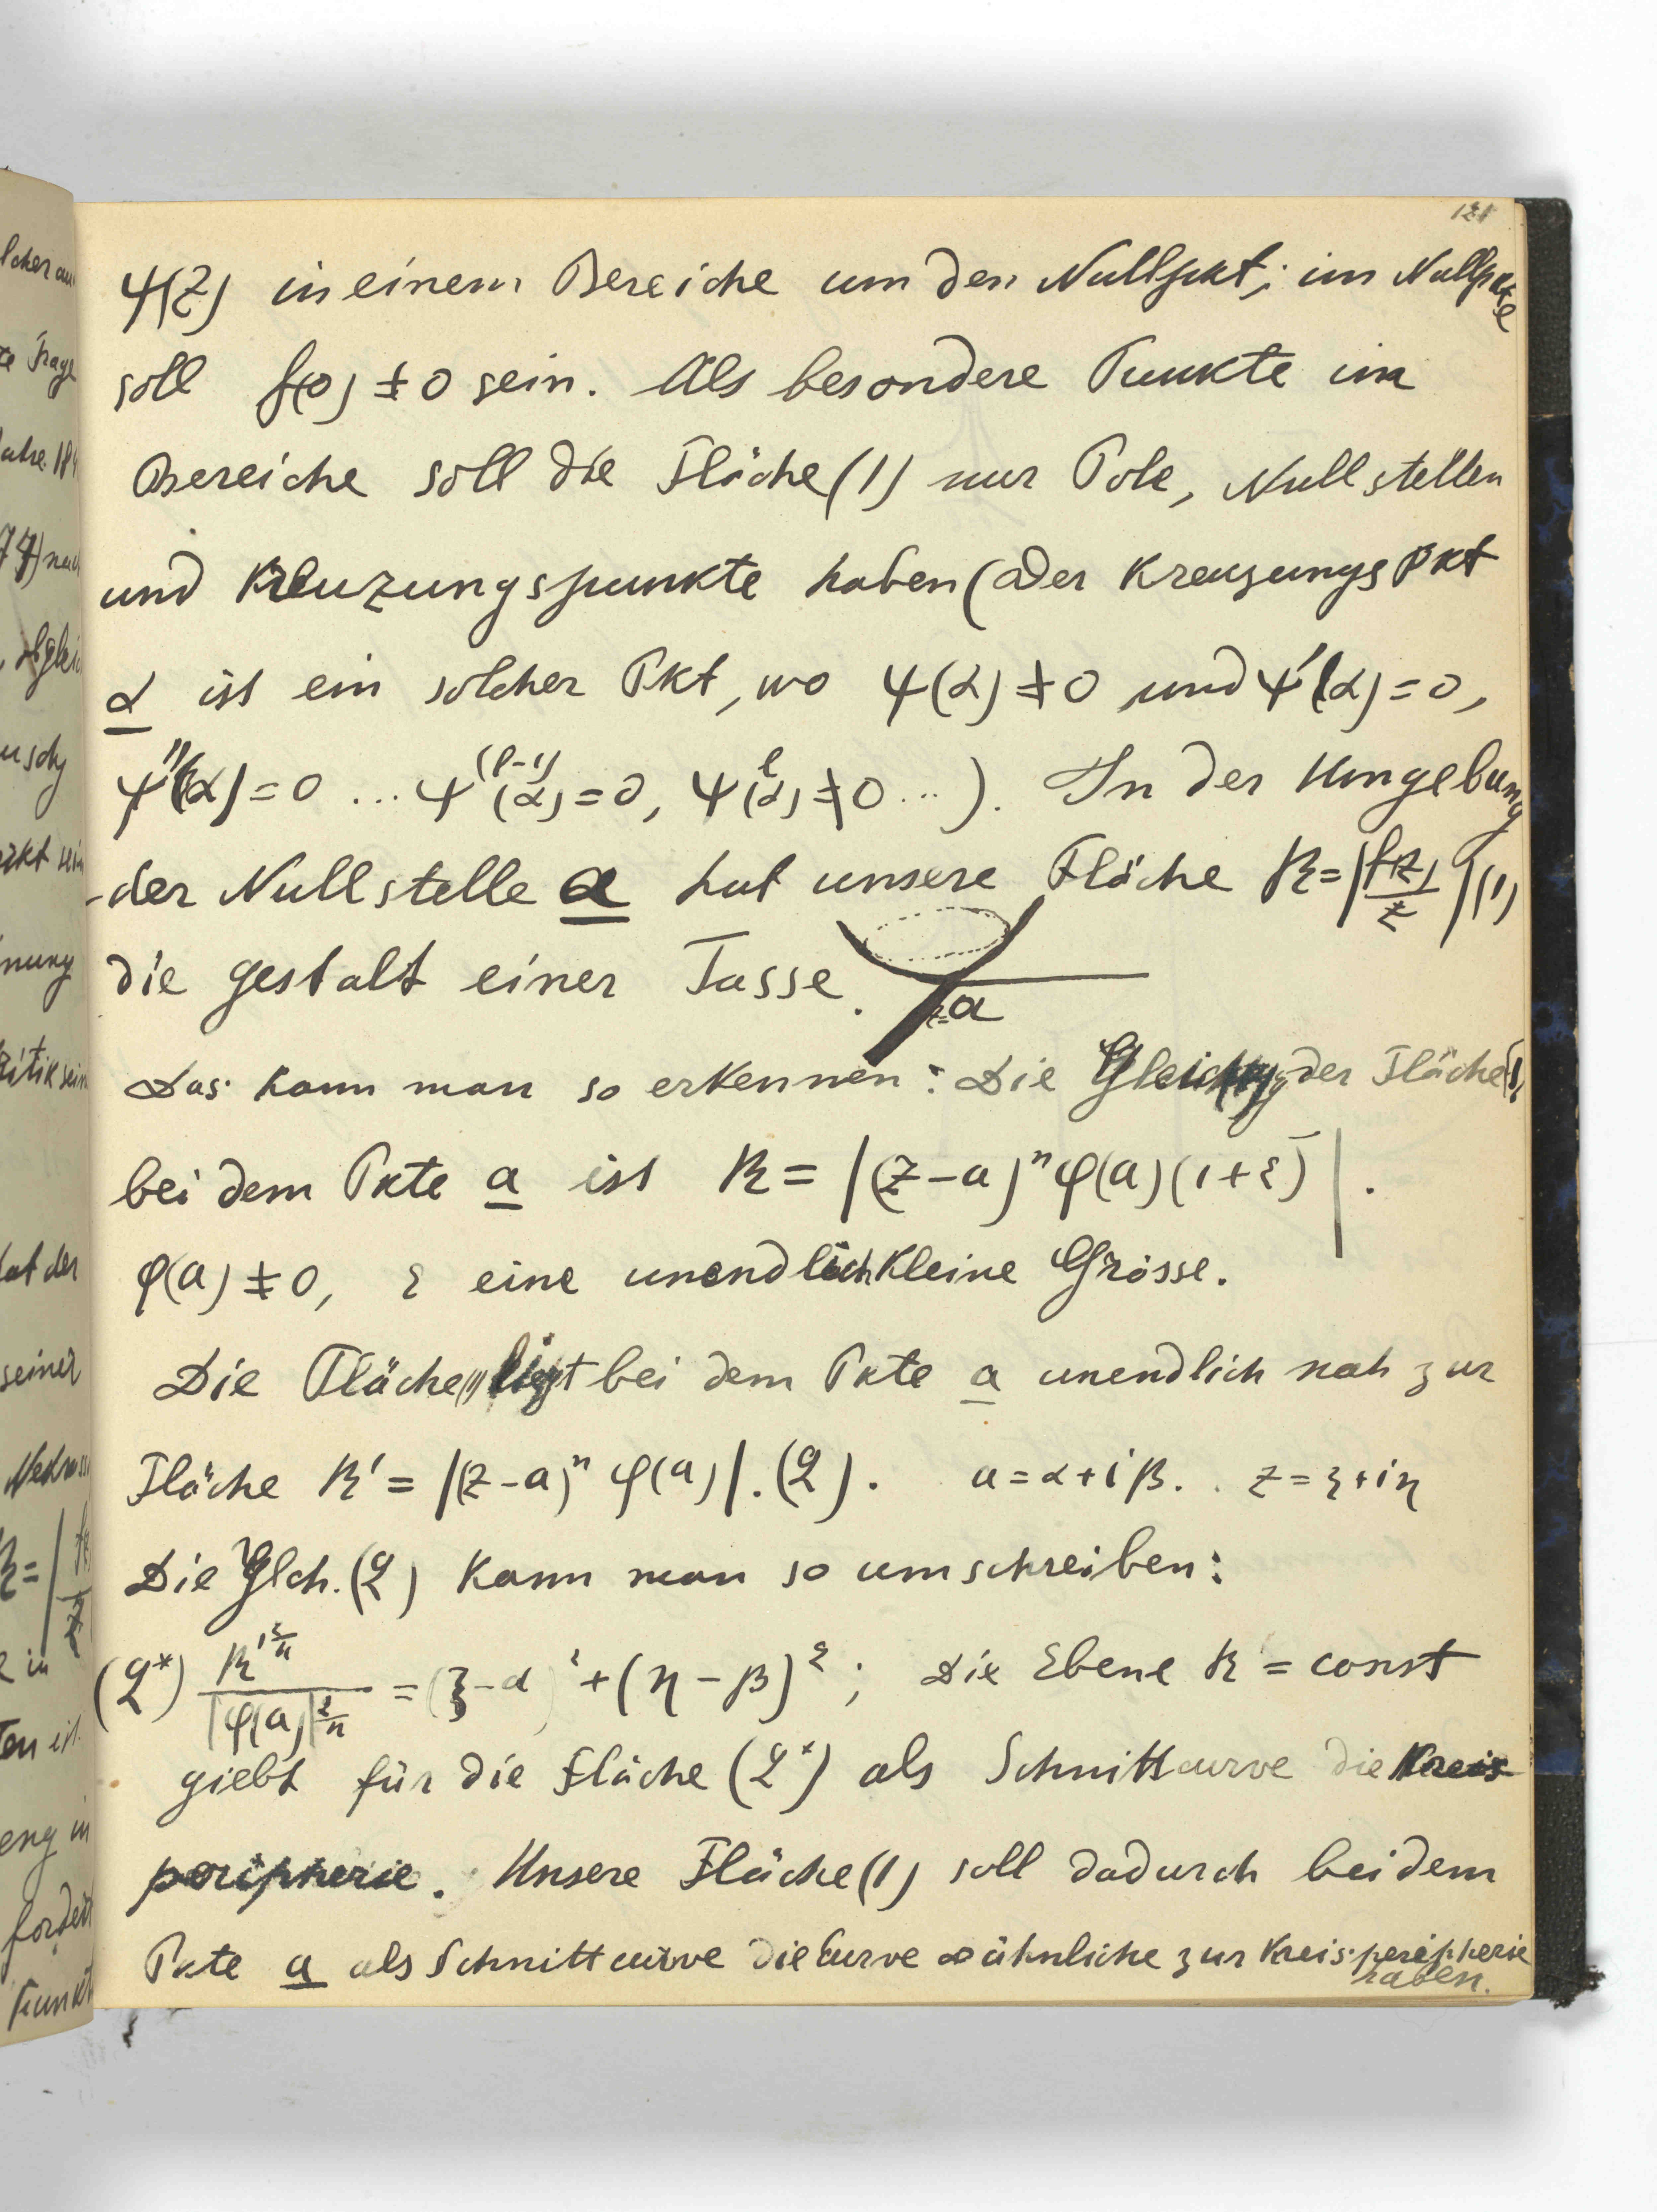 121
ψ(z) in einem Bereiche um den Nullpkt; im Nullpkte
soll f(0) ≠ 0 sein. Als besondere Punkte im
Bereiche soll die Fläche (1) nur Pole, Nullstellen
und Kreuzungspunkte haben (Der Kreuzungspkt
α ist ein solcher Pkt, wo ψ(α) ≠ 0 und ψ'(α) = 0,
ψ''(α) = 0 ... ψ^(l-1)(α) = 0, ψ^l(α) ≠ 0 ...). In der Umgebung
der Nullstelle a hat unsere Fläche R = |f(z)/z| (1)
die gestalt einer Tasse.
z=a
Das kann man so erkennen: Die Gleichg der Fläche (1)
bei dem Pkte a ist R = |(z-a)^n φ(a)(1+ε)|.
φ(a) ≠ 0, ε eine unendlich kleine Grösse.
Die Fläche (1) liegt bei dem Pkte a unendlich nah zur
Fläche R' = |(z-a)^n φ(a)|. (2). a = α+iβ. z = ξ+iη
Die Glch. (2) kann man so umschreiben:
(2*) R'^(2/n) / |φ(a)|^(2/n) = (ξ-α)² + (η-β)²; Die Ebene R' = const
giebt für die Fläche (2*) als Schnittcurve die Kreis
peripherie. Unsere Fläche (1) soll dadurch bei dem
Pkte a als Schnittcurve die Curve ∞ ähnliche zur Kreisperipherie
haben.